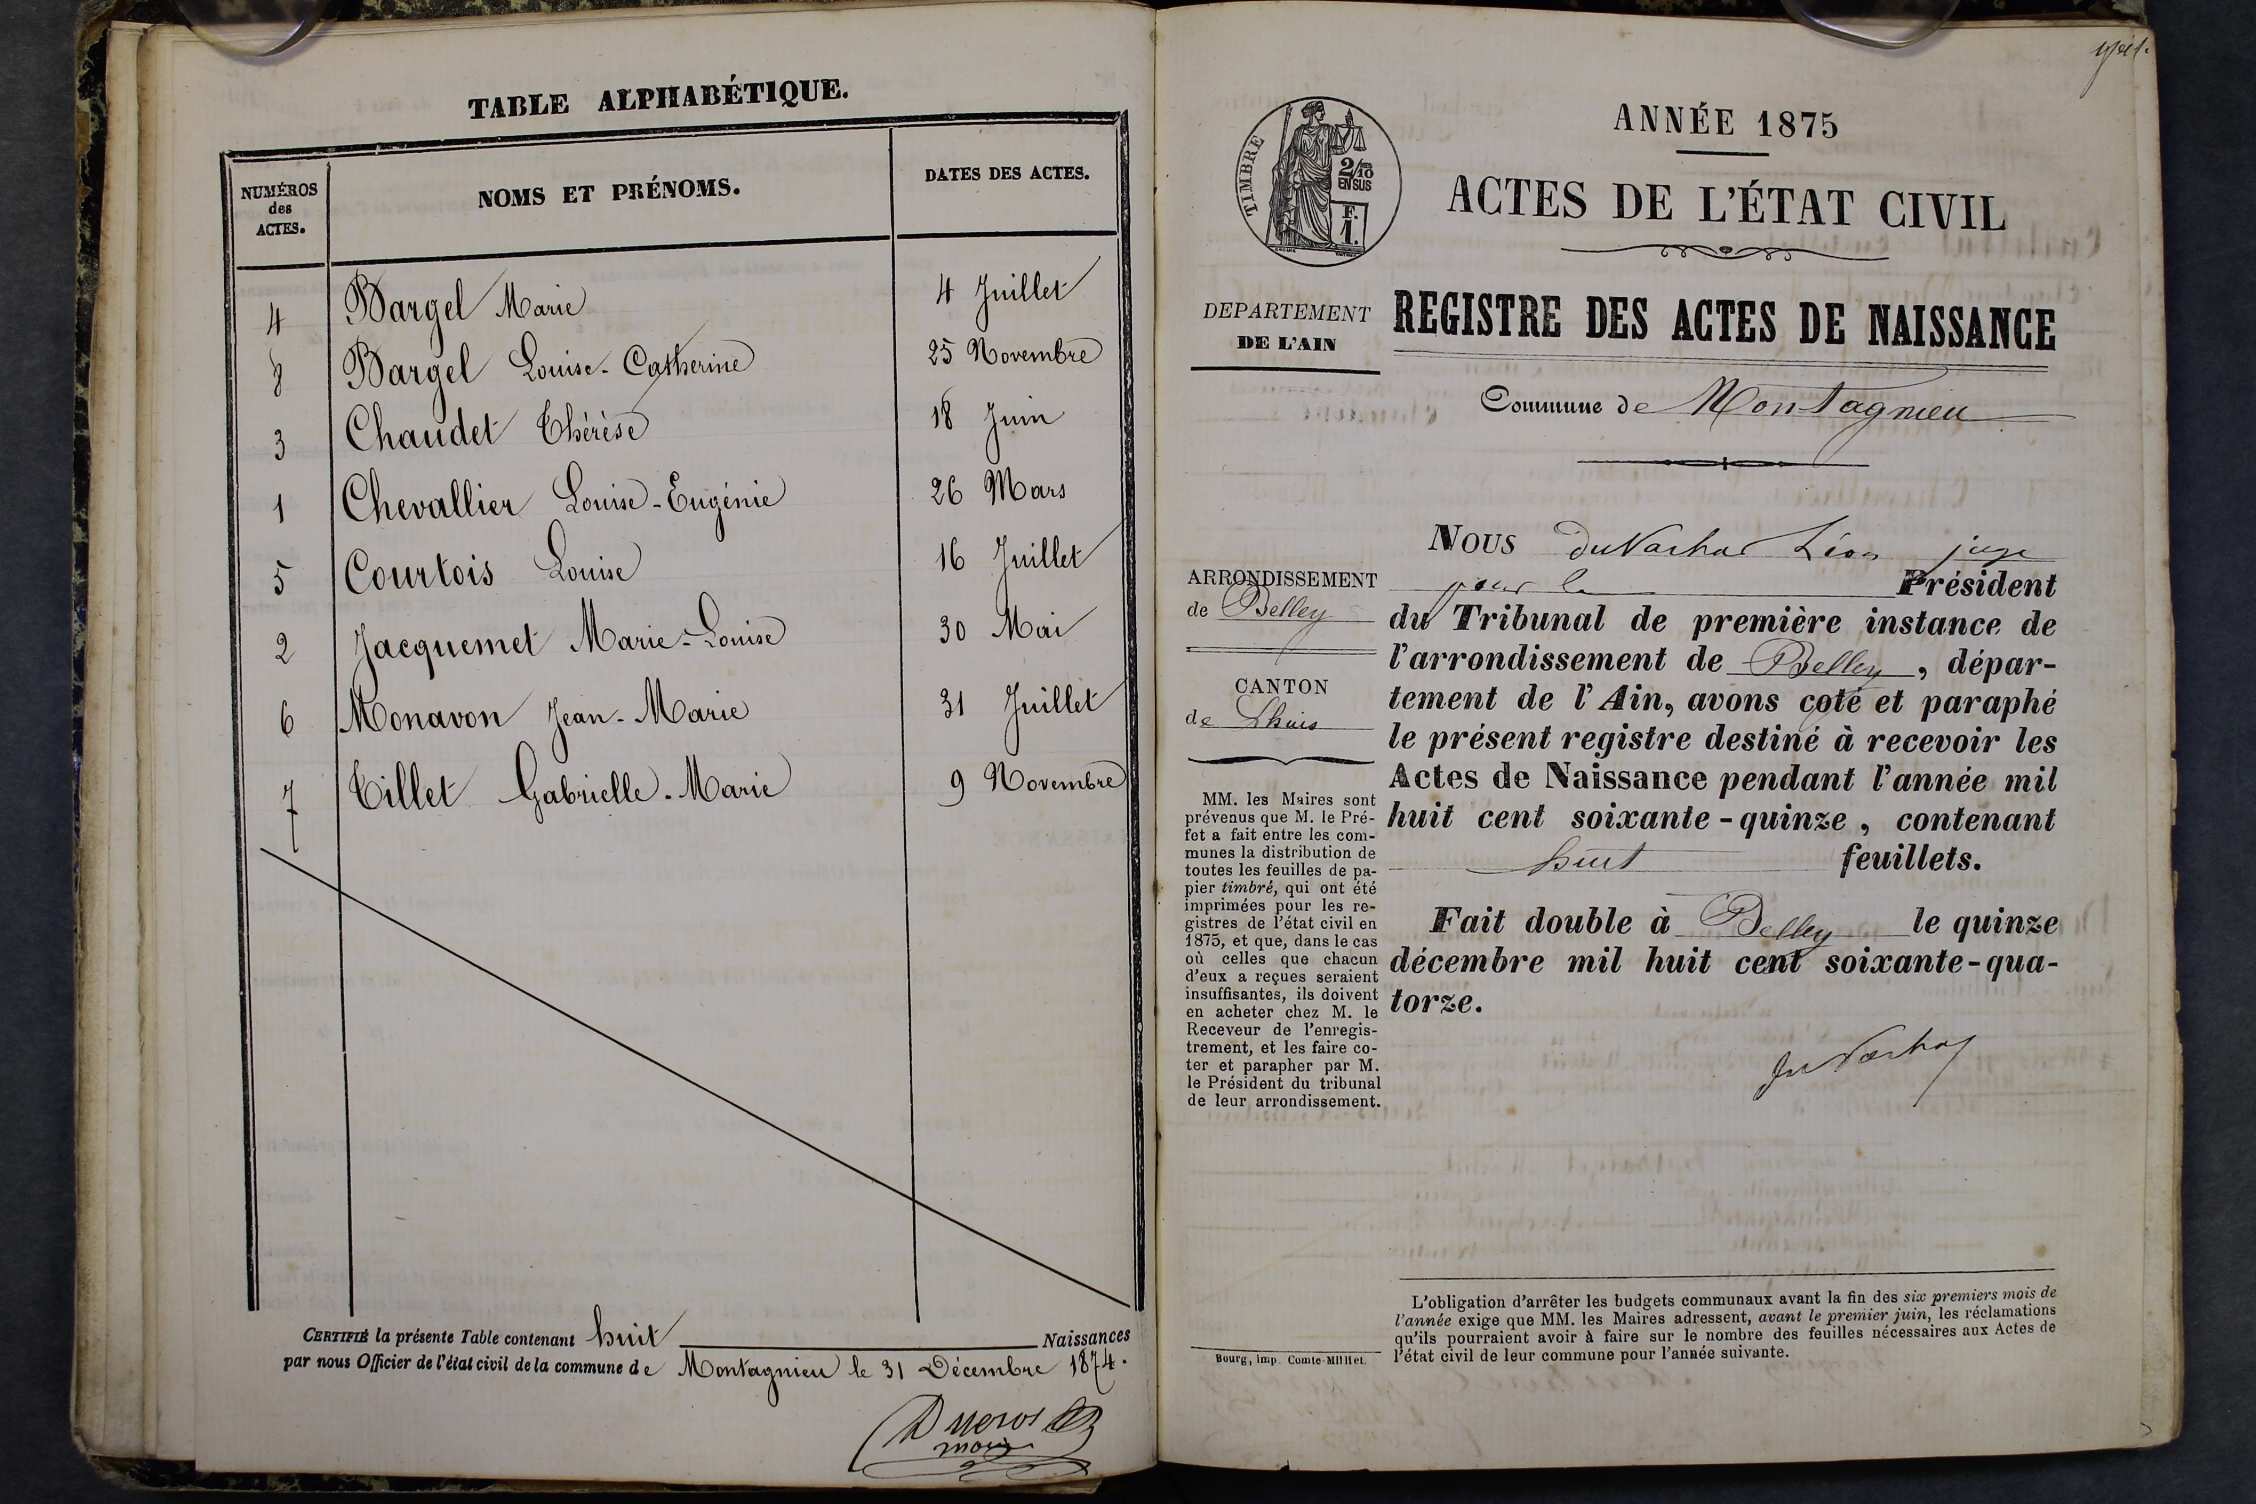 TABLE ALPHABÉTIQUE.
NUMÉROS des ACTES. NOMS ET PRÉNOMS. DATES DES ACTES.
4 Bargel Marie 4 Juillet
8 Bargel Louise-Catherine 25 Novembre
3 Chaudet Thérèse 18 Juin
1 Chevallier Louise-Eugénie 26 Mars
5 Courtois Louise 16 Juillet
2 Jacquemet Marie-Louise 30 Mai
6 Monavon Jean-Marie 31 Juillet
7 Tillet Gabrielle-Marie 9 Novembre
CERTIFIÉ la présente Table contenant huit Naissances
par nous Officier de l'état civil de la commune de Montagnieu le 31 Décembre 1874.
ANNÉE 1875
TIMBRE
2/10
EN SUS
F.
1.
ACTES DE L'ÉTAT CIVIL
DEPARTEMENT
DE L'AIN
REGISTRE DES ACTES DE NAISSANCE
Commune de Montagnieu
ARRONDISSEMENT
de Belley
CANTON
de Lhuis
MM. les Maires sont
prévenus que M. le Pré-
fet a fait entre les com-
munes la distribution de
toutes les feuilles de pa-
pier timbré, qui ont été
imprimées pour les re-
gistres de l'état civil en
1875, et que, dans le cas
où celles que chacun
d'eux a reçues seraient
insuffisantes, ils doivent
en acheter chez M. le
Receveur de l'enregis-
trement, et les faire co-
ter et parapher par M.
le Président du tribunal
de leur arrondissement.
Nous Léon juge
pour le Président
du Tribunal de première instance de
l'arrondissement de Belley, dépar-
tement de l'Ain, avons coté et paraphé
le présent registre destiné à recevoir les
Actes de Naissance pendant l'année mil
huit cent soixante-quinze, contenant
huit feuillets.
Fait double à Belley le quinze
décembre mil huit cent soixante-qua-
torze.
L'obligation d'arrêter les budgets communaux avant la fin des six premiers mois de
l'année exige que MM. les Maires adressent, avant le premier juin, les réclamations
qu'ils pourraient avoir à faire sur le nombre des feuilles nécessaires aux Actes de
l'état civil de leur commune pour l'année suivante.
Bourg, imp. Comte-Milliet.